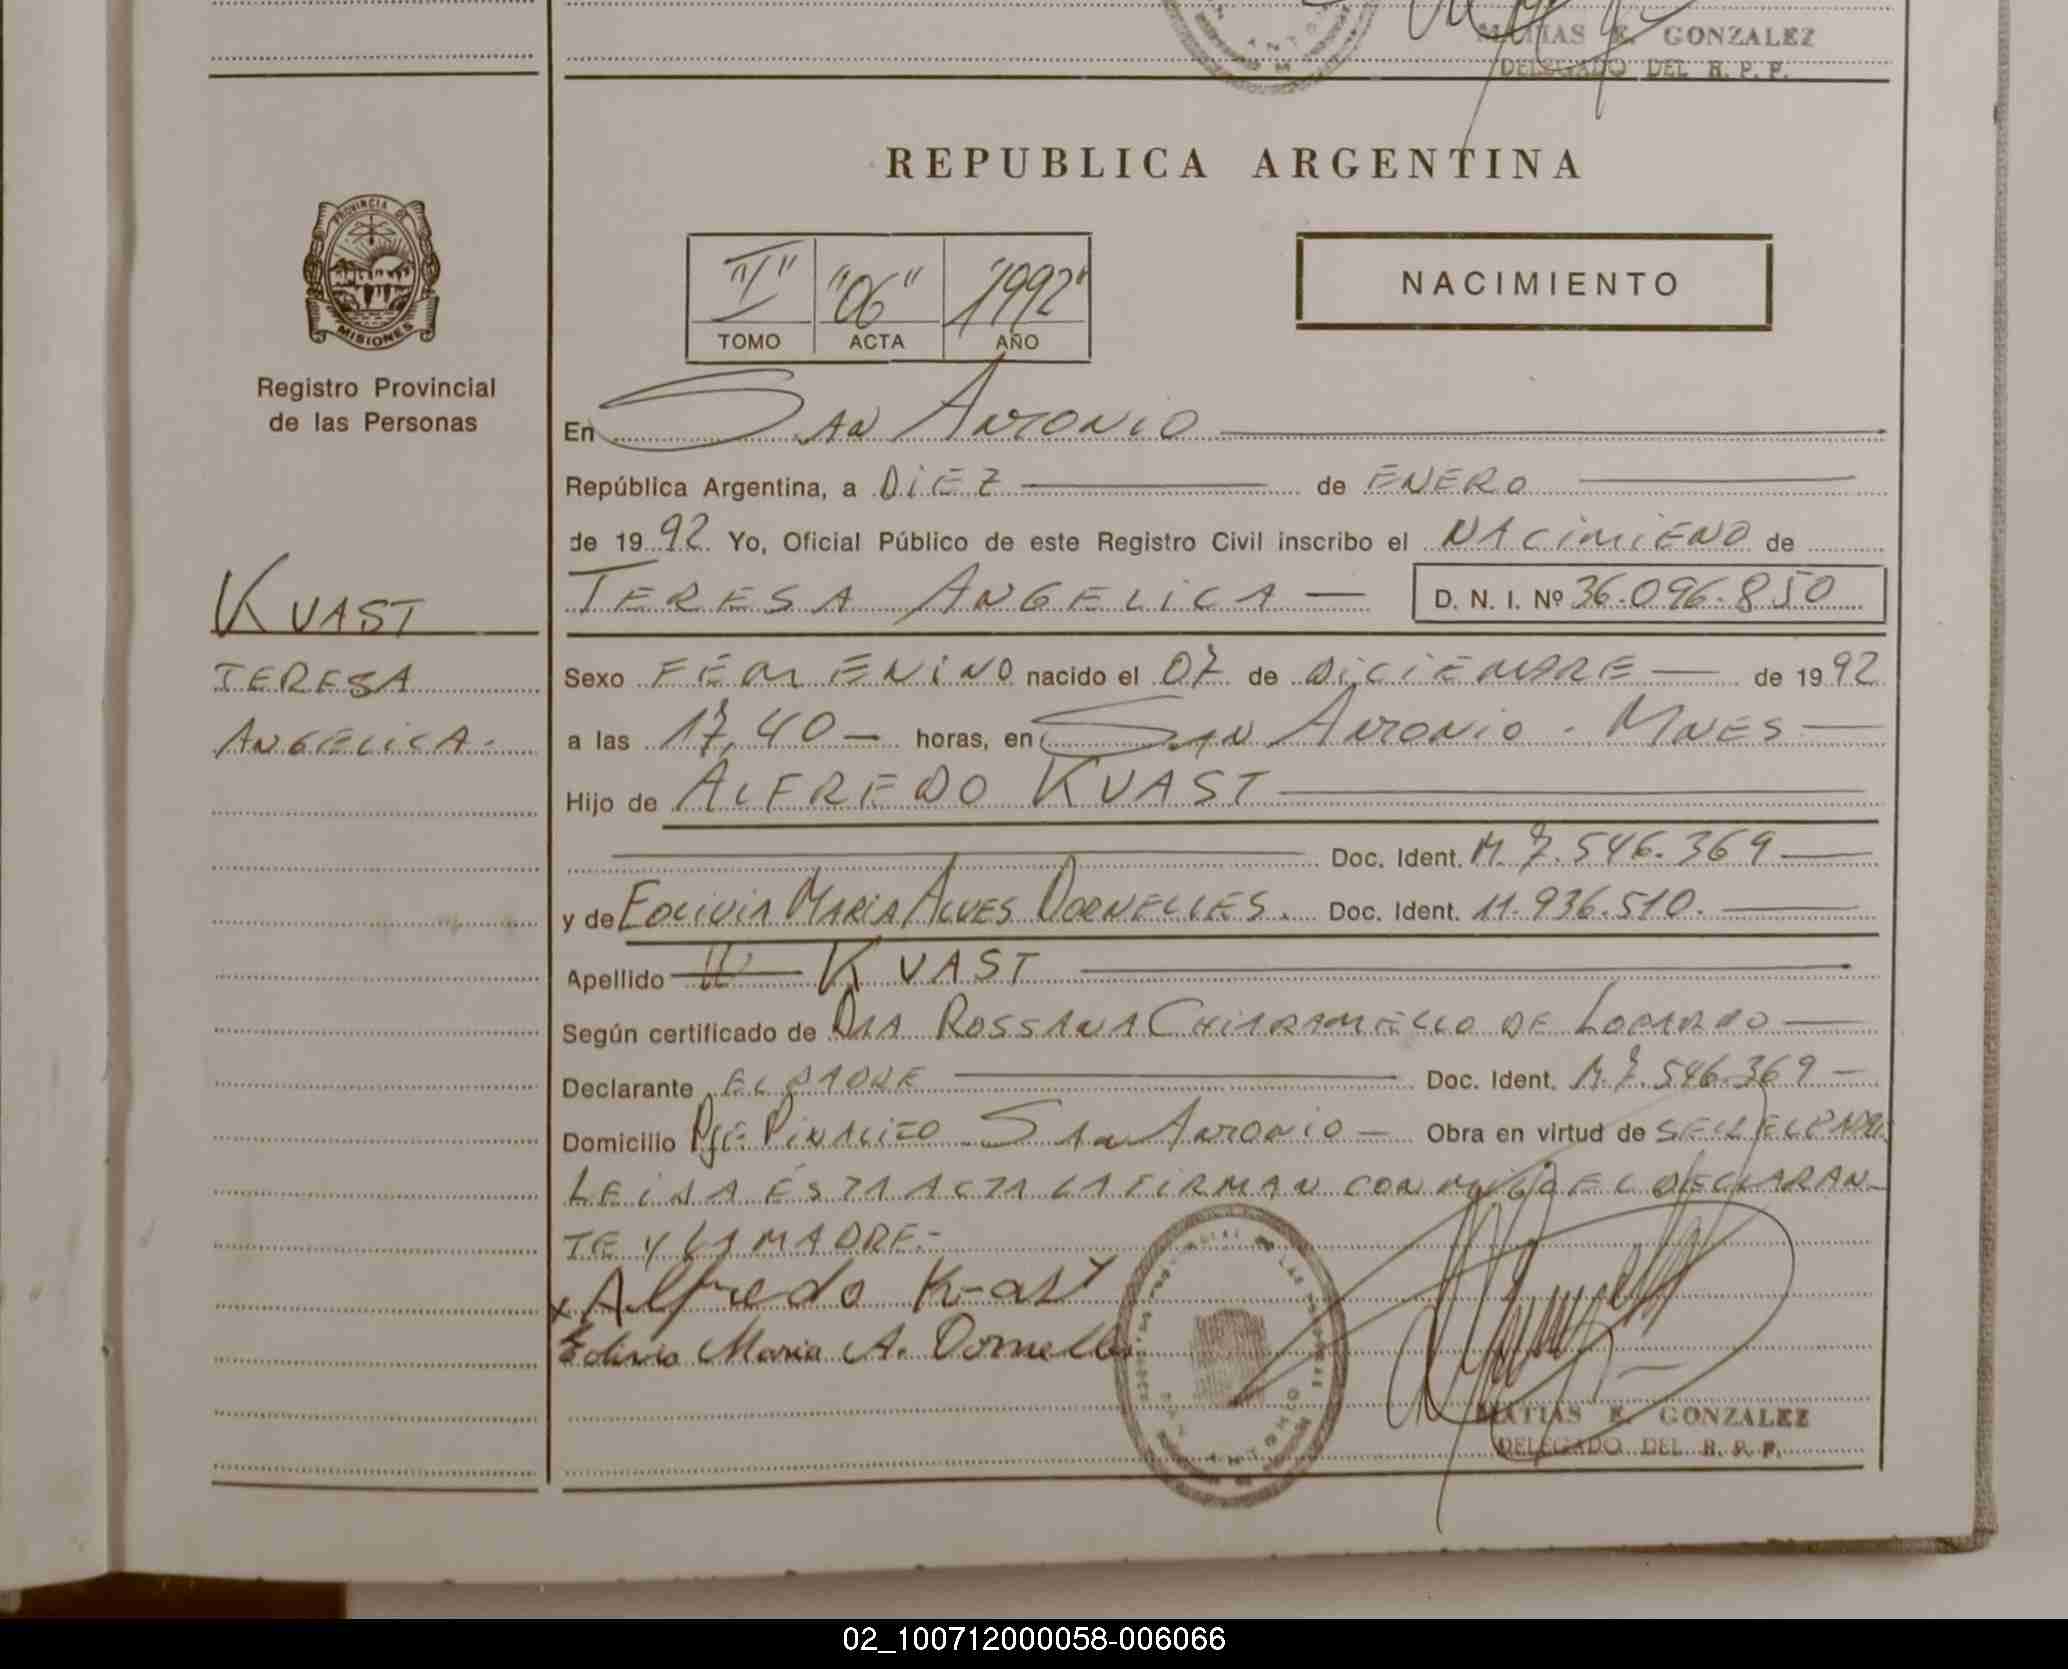 MATIAS E. GONZALEZ
DELEGADO DEL R. P. P.
REPUBLICA ARGENTINA
PROVINCIA DE
MISIONES
Registro Provincial
de las Personas
"I" "06" "1992"
TOMO ACTA AÑO
NACIMIENTO
En SAN ANTONIO
República Argentina, a DIEZ de ENERO
de 1992. Yo, Oficial Público de este Registro Civil inscribo el NACIMIENO de
TERESA ANGELICA — D. N. I. Nº 36.096.850
KUAST
TERESA
ANGELICA.-
Sexo FEMENINO nacido el 07 de DICIEMBRE — de 1992
a las 17,40 — horas, en SAN ANTONIO - MNES —
Hijo de ALFREDO KUAST
Doc. Ident. M. 7.546.369 —
y de EOLIVIA MARIA ALVES DORNELLES. Doc. Ident. 11.936.510. —
Apellido KUAST
Según certificado de DRA ROSSANA CHIARAMELLO DE —
Declarante EL PADRE Doc. Ident. M. 7.546.369 —
Domicilio Pje. PINALITO SAN ANTONIO — Obra en virtud de
LEIDA ESTA ACTA LA FIRMAN CON MIGO EL DECLARAN-
TE Y LA MADRE.-
x Alfredo Kuast
Eolivia Maria A. Dornelles
SAN ANTONIO
MATIAS E. GONZALEZ
DELEGADO DEL R. P. P.
02_100712000058-006066